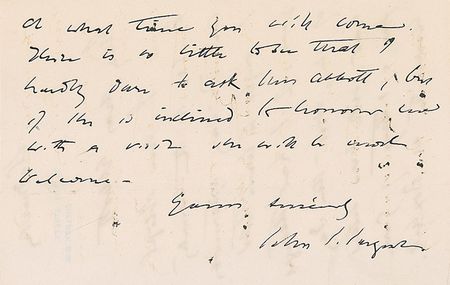 at what time you will come.
There is so little to see that I
hardly dare to ask Miss Abbott, but
if she is inclined to honour me
with a visit she will be most
welcome—
Yours sincerely
John S. Sargent